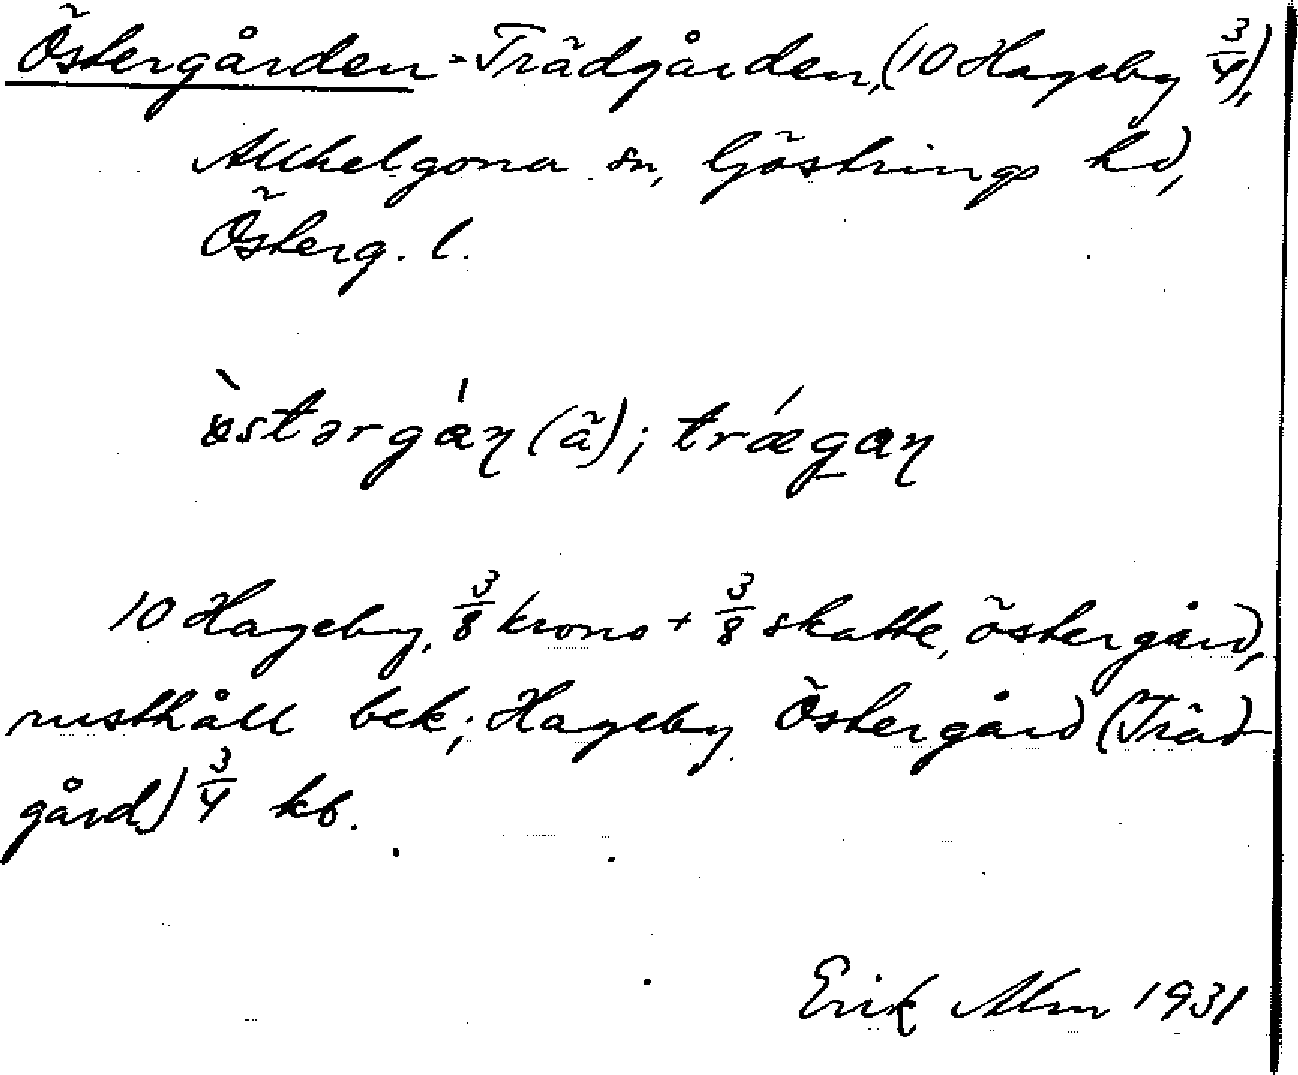 Östergården - Trädgården, (10 Hageby 3/4),
Allhelgona sn, Göstrings hd,
Österg. l.
östərgáŋ (ã); trǽgaŋ
10 Hageby, 3/8 krono + 3/8 skatte, östergård,
rusthåll bek; Hageby Östergård (Träd-
gård) 3/4 kb.
Erik Alm 1931